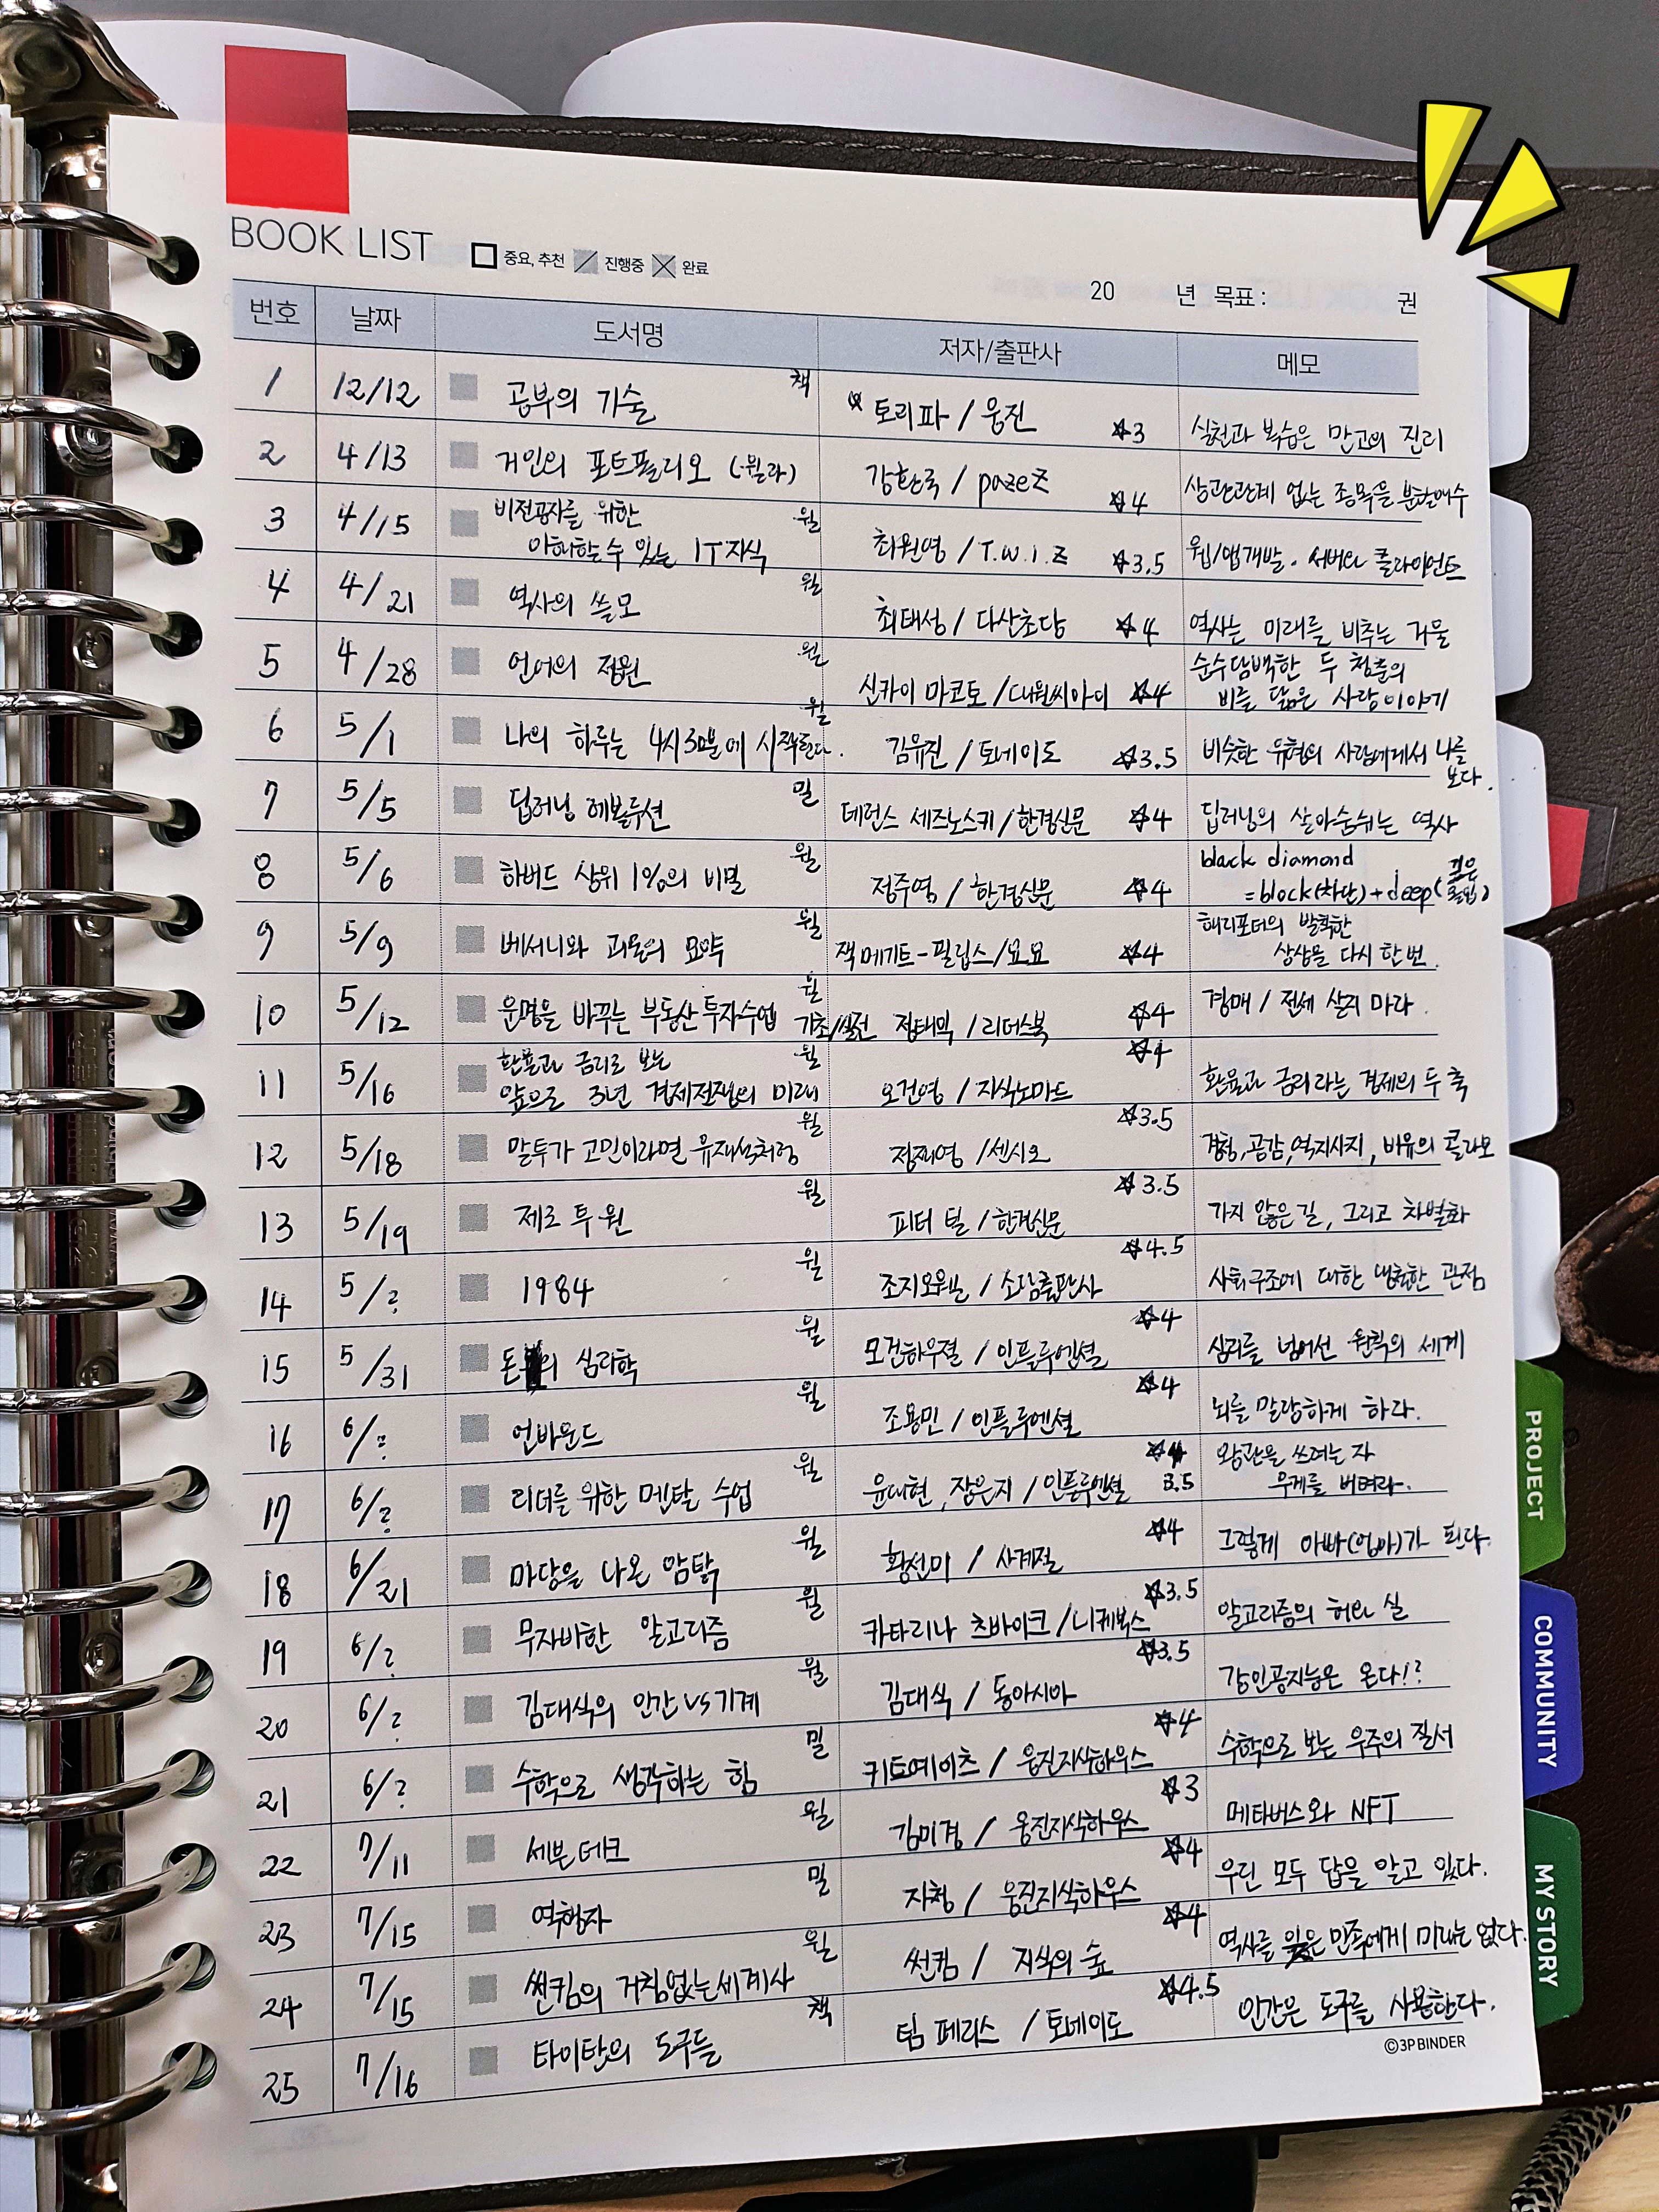 BOOK LIST 중요, 추천 진행중 완료
20 년 목표 : 권
번호 날짜 도서명 저자/출판사 메모
1 12/12 공부의 기술 책 토리파 / 웅진 ☆3 실천과 복습은 만고의 진리
2 4/13 거인의 포트폴리오 (윌라) 강환국 / pazeZ ☆4 상관관계 없는 종목을 분할매수
3 4/15 비전공자를 위한 윌
이해할 수 있는 IT지식 최원영 / T.W.I.Z ☆3.5 웹/앱개발. 서버와 클라이언트
4 4/21 역사의 쓸모 윌 최태성 / 다산초당 ☆4 역사는 미래를 비추는 거울
5 4/28 언어의 정원 윌 신카이 마코토 / 대원씨아이 ☆4 순수담백한 두 청춘의
비를 닮은 사랑이야기
6 5/1 나의 하루는 4시30분에 시작된다. 윌 김유진 / 토네이도 ☆3.5 비슷한 유형의 사람에게서 나를
보다.
7 5/5 딥러닝 레볼루션 밀 테런스 세즈노스키/한경신문 ☆4 딥러닝의 살아숨쉬는 역사
8 5/6 하버드 상위 1%의 비밀 윌 정주영 / 한경신문 ☆4 black diamond
=block(차단)+deep(깊은 몰입)
9 5/9 베서니와 괴물의 묘약 윌 잭 메기트-필립스/요요 ☆4 해리포터의 발칙한
상상을 다시 한번.
10 5/12 운명을 바꾸는 부동산 투자수업 기초/실전 윌 정태익 / 리더스북 ☆4 경매 / 전세 살지 마라.
11 5/16 환율과 금리로 보는 윌 ☆4
앞으로 3년 경제전쟁의 미래 오건영 / 지식노마드 환율과 금리라는 경제의 두 축
12 5/18 말투가 고민이라면 유재석처럼 윌 정재영 /센시오 ☆3.5 경청, 공감, 역지사지, 비유의 콜라보
13 5/19 제로 투 원 윌 피터 틸 / 한경신문 ☆3.5 가지 않은 길, 그리고 차별화
14 5/? 1984 윌 조지오웰 / 소담출판사 ☆4.5 사회구조에 대한 냉철한 관점
15 5/31 돈의 심리학 윌 모건하우절 / 인플루엔셜 ☆4 심리를 넘어선 원칙의 세계
16 6/? 언바운드 윌 조용민 / 인플루엔셜 ☆4 뇌를 말랑하게 하라.
17 6/? 리더를 위한 멘탈 수업 윌 윤대현, 장은지 / 인플루엔셜 3.5 왕관을 쓰려는 자
무게를 버텨라.
18 6/21 마당을 나온 암탉 윌 황선미 / 사계절 ☆4 그렇게 아빠(엄마)가 된다.
19 6/? 무자비한 알고리즘 윌 카타리나 츠바이크 /니케북스 ☆3.5 알고리즘의 허와 실
20 6/? 김대식의 인간 vs 기계 윌 김대식 / 동아시아 ☆3.5 강인공지능은 온다!?
21 6/? 수학으로 생각하는 힘 밀 키트예이츠 / 웅진지식하우스 ☆4 수학으로 보는 우주의 질서
22 7/11 세븐테크 윌 김미경 / 웅진지식하우스 ☆3 메타버스와 NFT
23 7/15 역행자 밀 자청 / 웅진지식하우스 ☆4 우린 모두 답을 알고 있다.
24 7/15 썬킴의 거침없는 세계사 윌 썬킴 / 지식의 숲 ☆4 역사를 잊은 민족에게 미래는 없다.
25 7/16 타이탄의 도구들 책 팀 페리스 / 토네이도 ☆4.5 인간은 도구를 사용한다.
©3PBINDER
PROJECT
COMMUNITY
MY STORY